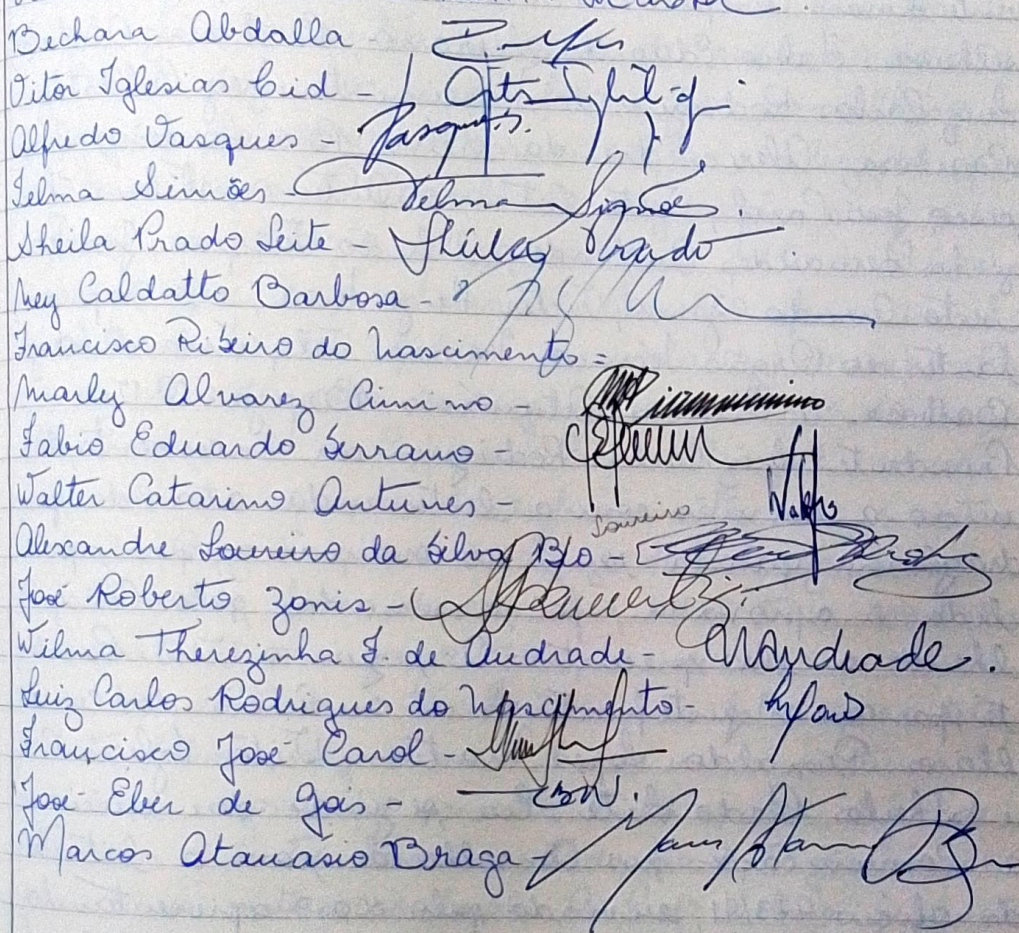 Bechara Abdalla
Vitor Iglesias Cid -
Alfredo Vasques - Vasques.
Telma Simões - Telma Simões.
Sheila Prado Leite - Sheila Prado
Ney Caldatto Barbosa -
Francisco Ribeiro do Nascimento =
Marly Alvarez Cimino -
Fabio Eduardo Serrano -
Walter Catarino Antunes -
Loureiro
Alexandre Loureiro da Silva B/o -
José Roberto Zonis -
Wilma Therezinha F. de Andrade - Andrade.
Luiz Carlos Rodrigues do Nascimento -
Francisco José Carol -
José Eber de Gois -
Marcos Atanásio Braga -